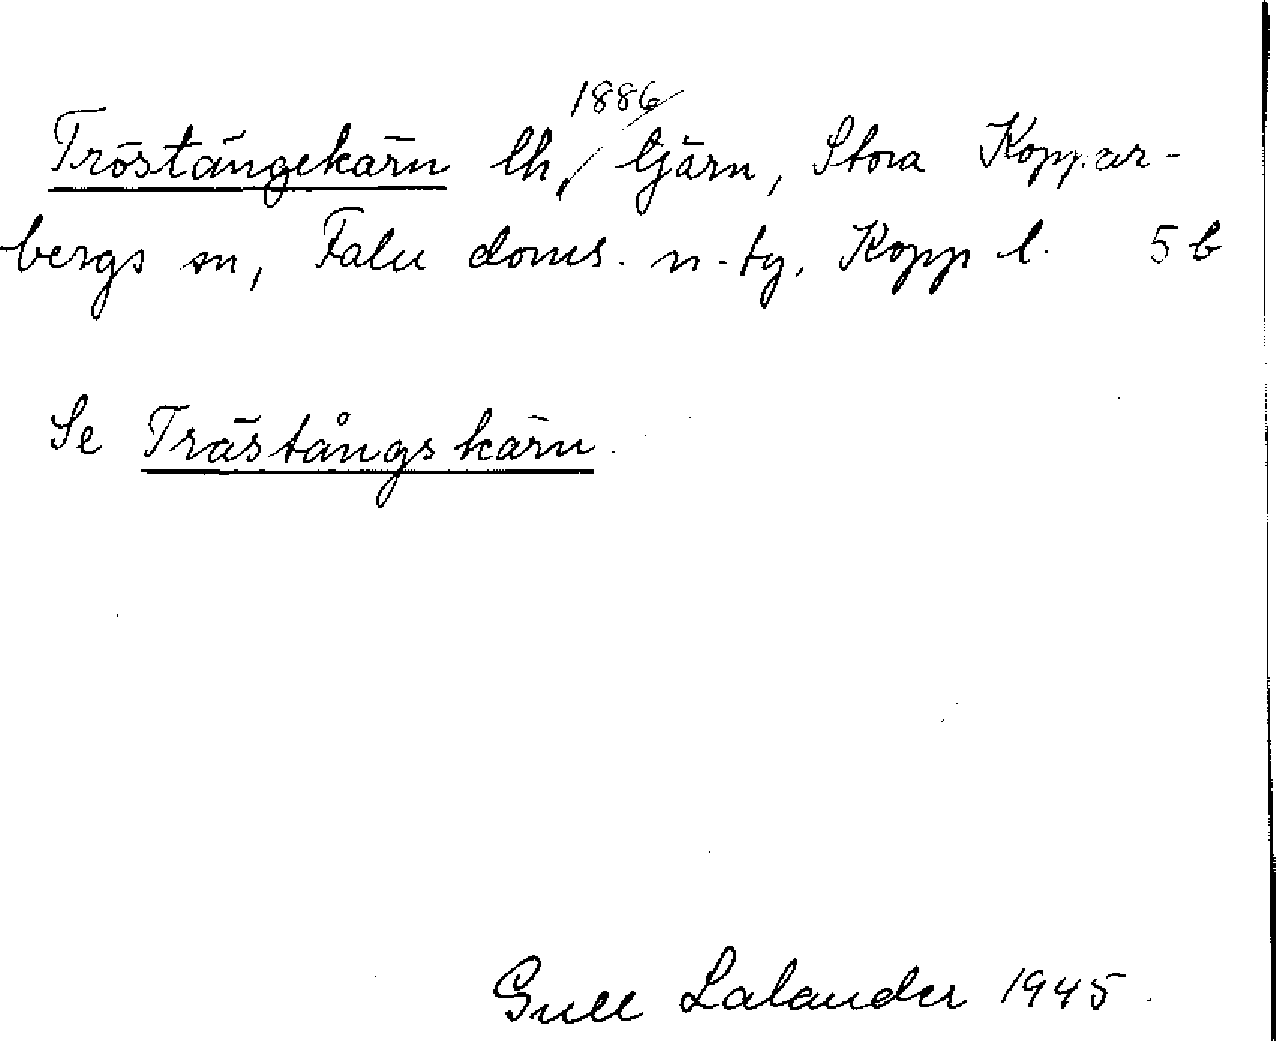 Tröstängekärn lh, 1886/ tjärn, Stora Koppar-
bergs sn, Falu doms. n-tg, Kopp l. 5 b
Se Trästångskärn.
Gull Lalander 1945.